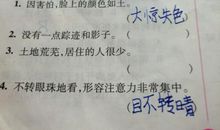 1. 因害怕,脸上的颜色如土。
(大惊失色)
2. 没有一点踪迹和影子。(
3. 土地荒芜,居住的人很少。
(
4. 不转眼珠地看,形容注意力非常集中。
(目不转睛)